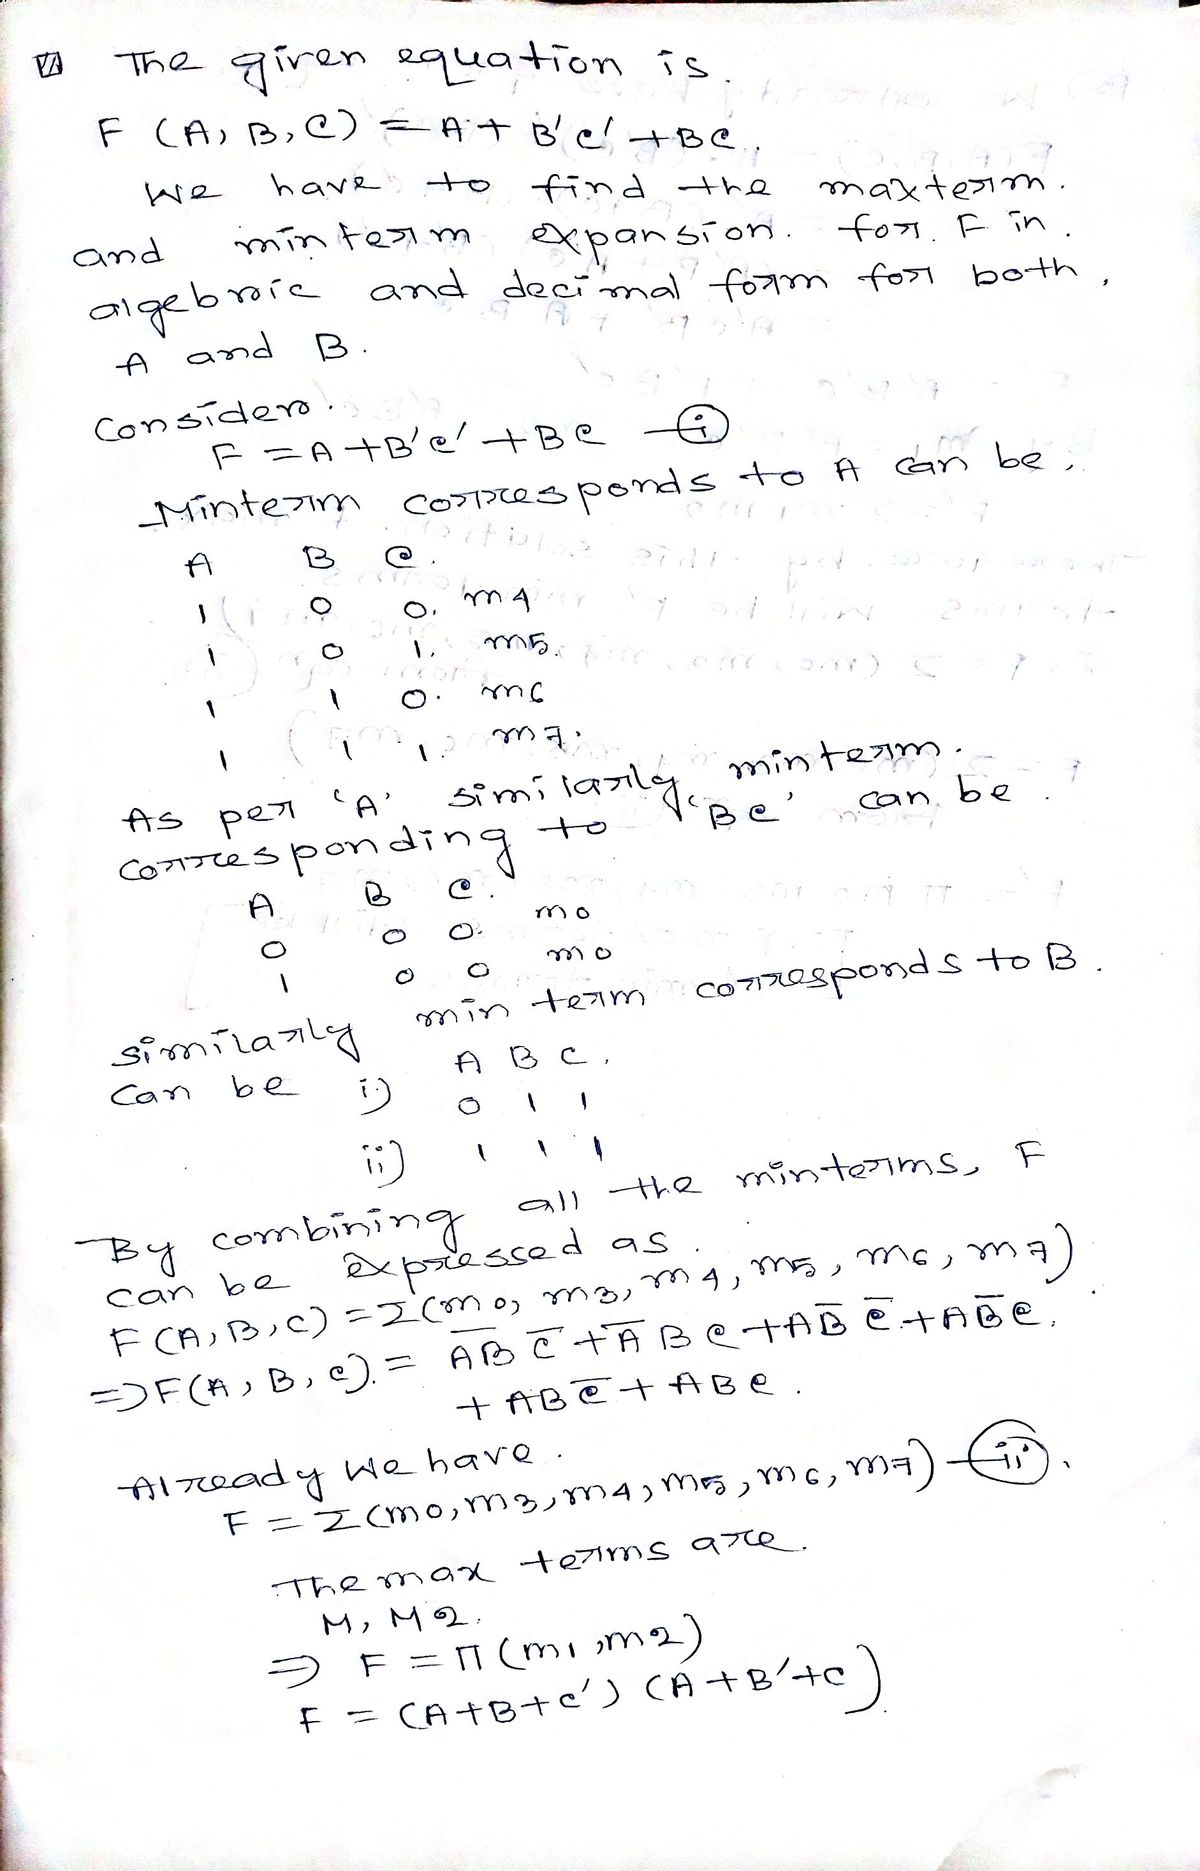 The given equation is.
F (A, B, C) = A + B'C' + BC.
We have to find the maxterm.
and minterm expansion. for. F in.
algebric and decimal form for both,
A and B.
Consider.
F = A + B'C' + BC — (i)
Minterm corresponds to A can be,
A B C.
1 0 0. m4
1 0 1. m5.
1 1 0. m6
1 1 1. m7.
As per 'A' similarly, minterm.
corresponding to 'BC' can be.
A B C.
0 0 0. m0
1 0 0 m0
similarly min term corresponds to B.
Can be A B C.
i) 0 1 1
ii) 1 1 1
By combining all the minterms, F
can be expressed as.
F (A, B, C) = Σ (m0, m3, m4, m5, m6, m7)
=> F(A, B, C). = A̅B̅ C̅ + A̅ B C + AB̅ C̅. + AB̅C.
+ ABC̅ + ABC.
Already we have.
F = Σ (m0, m3, m4, m5, m6, m7) — (ii).
The max terms are.
M, M2.
=> F = Π (m1, m2)
F = (A+B+C') (A+B'+C)